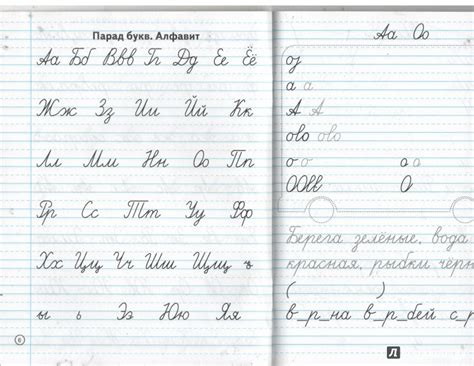 Парад букв. Алфавит
Аа Бб Ввв Гг Дд Ее Ёё
Жж Зз Ии Йй Кк
Лл Мм Нн Оо Пп
Рр Сс Тт Уу Фф
Хх Цц Чч Шш Щщ ъ
ы ь Ээ Юю Яя
6
Аа Оо
а а
А А
о о о о
О
Берега зелёные, вода
красная, рыбки чёрн
( )
в_р_на в_р_бей с_р
Л